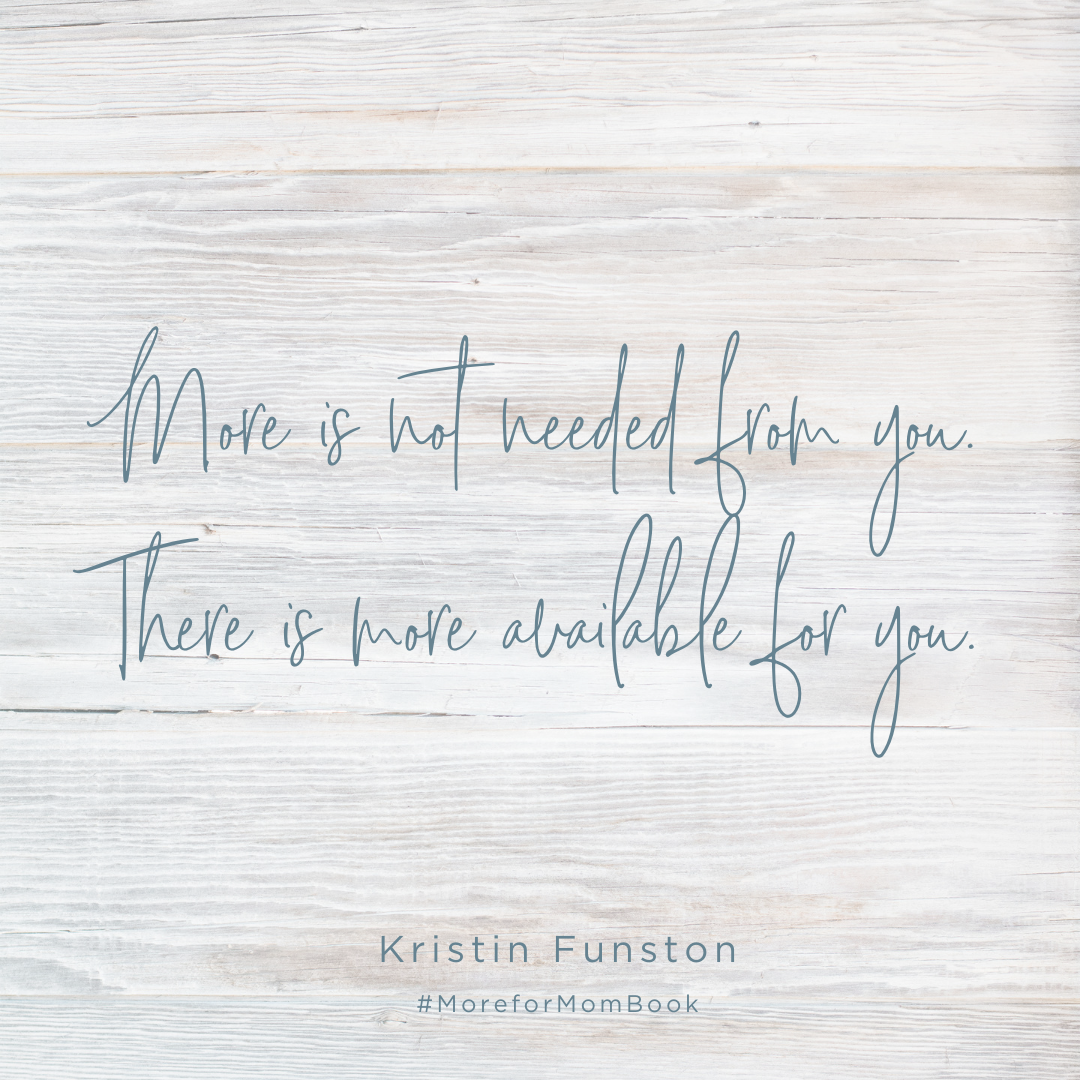 More is not needed from you.
There is more available for you.
Kristin Funston
#MoreforMomBook